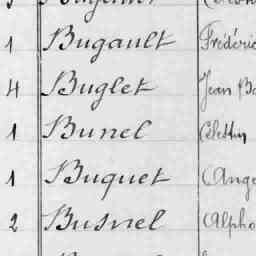 1 Bugault Frédéric
4 Buglet Jean Ba
1 Bunel Célestin
1 Buquet Ange
2 Busnel Alpho